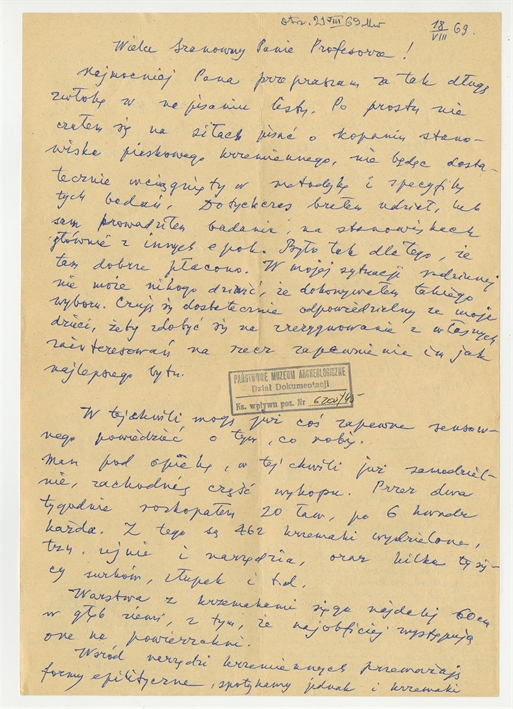 otrz. 21 VIII 69
18/VIII 69.
Wielce Szanowny Panie Profesorze!
Najmocniej Pana przepraszam za tak długą
zwłokę w napisaniu listu. Po prostu nie
czułem się na siłach pisać o kopaniu stano-
wiska piaskowego krzemiennego, nie będąc dosta-
tecznie wciągnięty w metodykę i specyfikę
tych badań. Dotychczas brałem udział, lub
sam prowadziłem badania, na stanowiskach
głównie z innych epok. Było tak dlatego, że
tam dobrze płacono. W mojej sytuacji rodzinnej
nie może nikogo dziwić, że dokonywałem takiego
wyboru. Czuję się dostatecznie odpowiedzialny za moje
dzieci, żeby zdobyć się na zrezygnowanie z własnych
zainteresowań na rzecz zapewnienia im jak
najlepszego bytu.
PAŃSTWOWE MUZEUM ARCHEOLOGICZNE
Dział Dokumentacji
Ks. wpływu poz. Nr
W tej chwili mogę już coś zapewne sensow-
nego powiedzieć o tym, co robię.
Mam pod opieką, w tej chwili już samodziel-
nie, zachodnią część wykopu. Przez dwa
tygodnie rozkopałem 20 ław, po 6 kwadr
każda. Z tego są 462 krzemaki wydzielone,
tzn. i narzędzia, oraz kilka tysię-
cy surków, łupek i t.d.
Warstwa z krzemakami sięga najdalej 60 cm
w głąb ziemi, z tym, że najobficiej występują
one na powierzchni.
Wśród narzędzi krzemiennych przeważają
formy epilityczne, spotykamy jednak i krzemaki